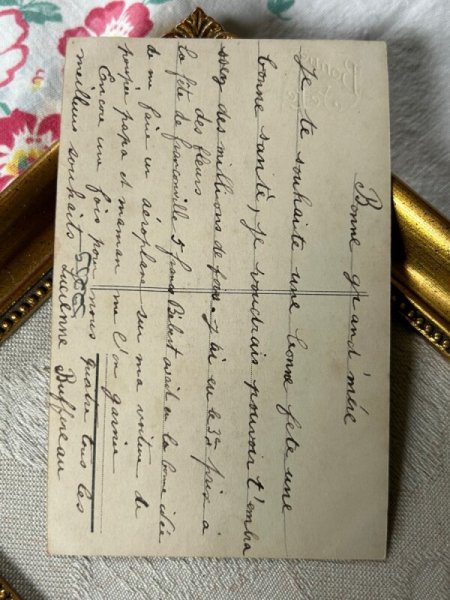 Bonne grand'mére
Je te souhaite une bonne fete une
bonne santé, je voudrais pouvoir t'embra
ssez des millions de fois. J'ai eu le 3e prix a
des fleurs
la fête de franconville 5 francs avait eu la bonne idée
de me faire un aéroplane sur ma voiture de
poupée papa et maman me l'on garnie
Encore une fois pour nous quatre tous les
meilleurs souhaits
Lucienne Buffineau